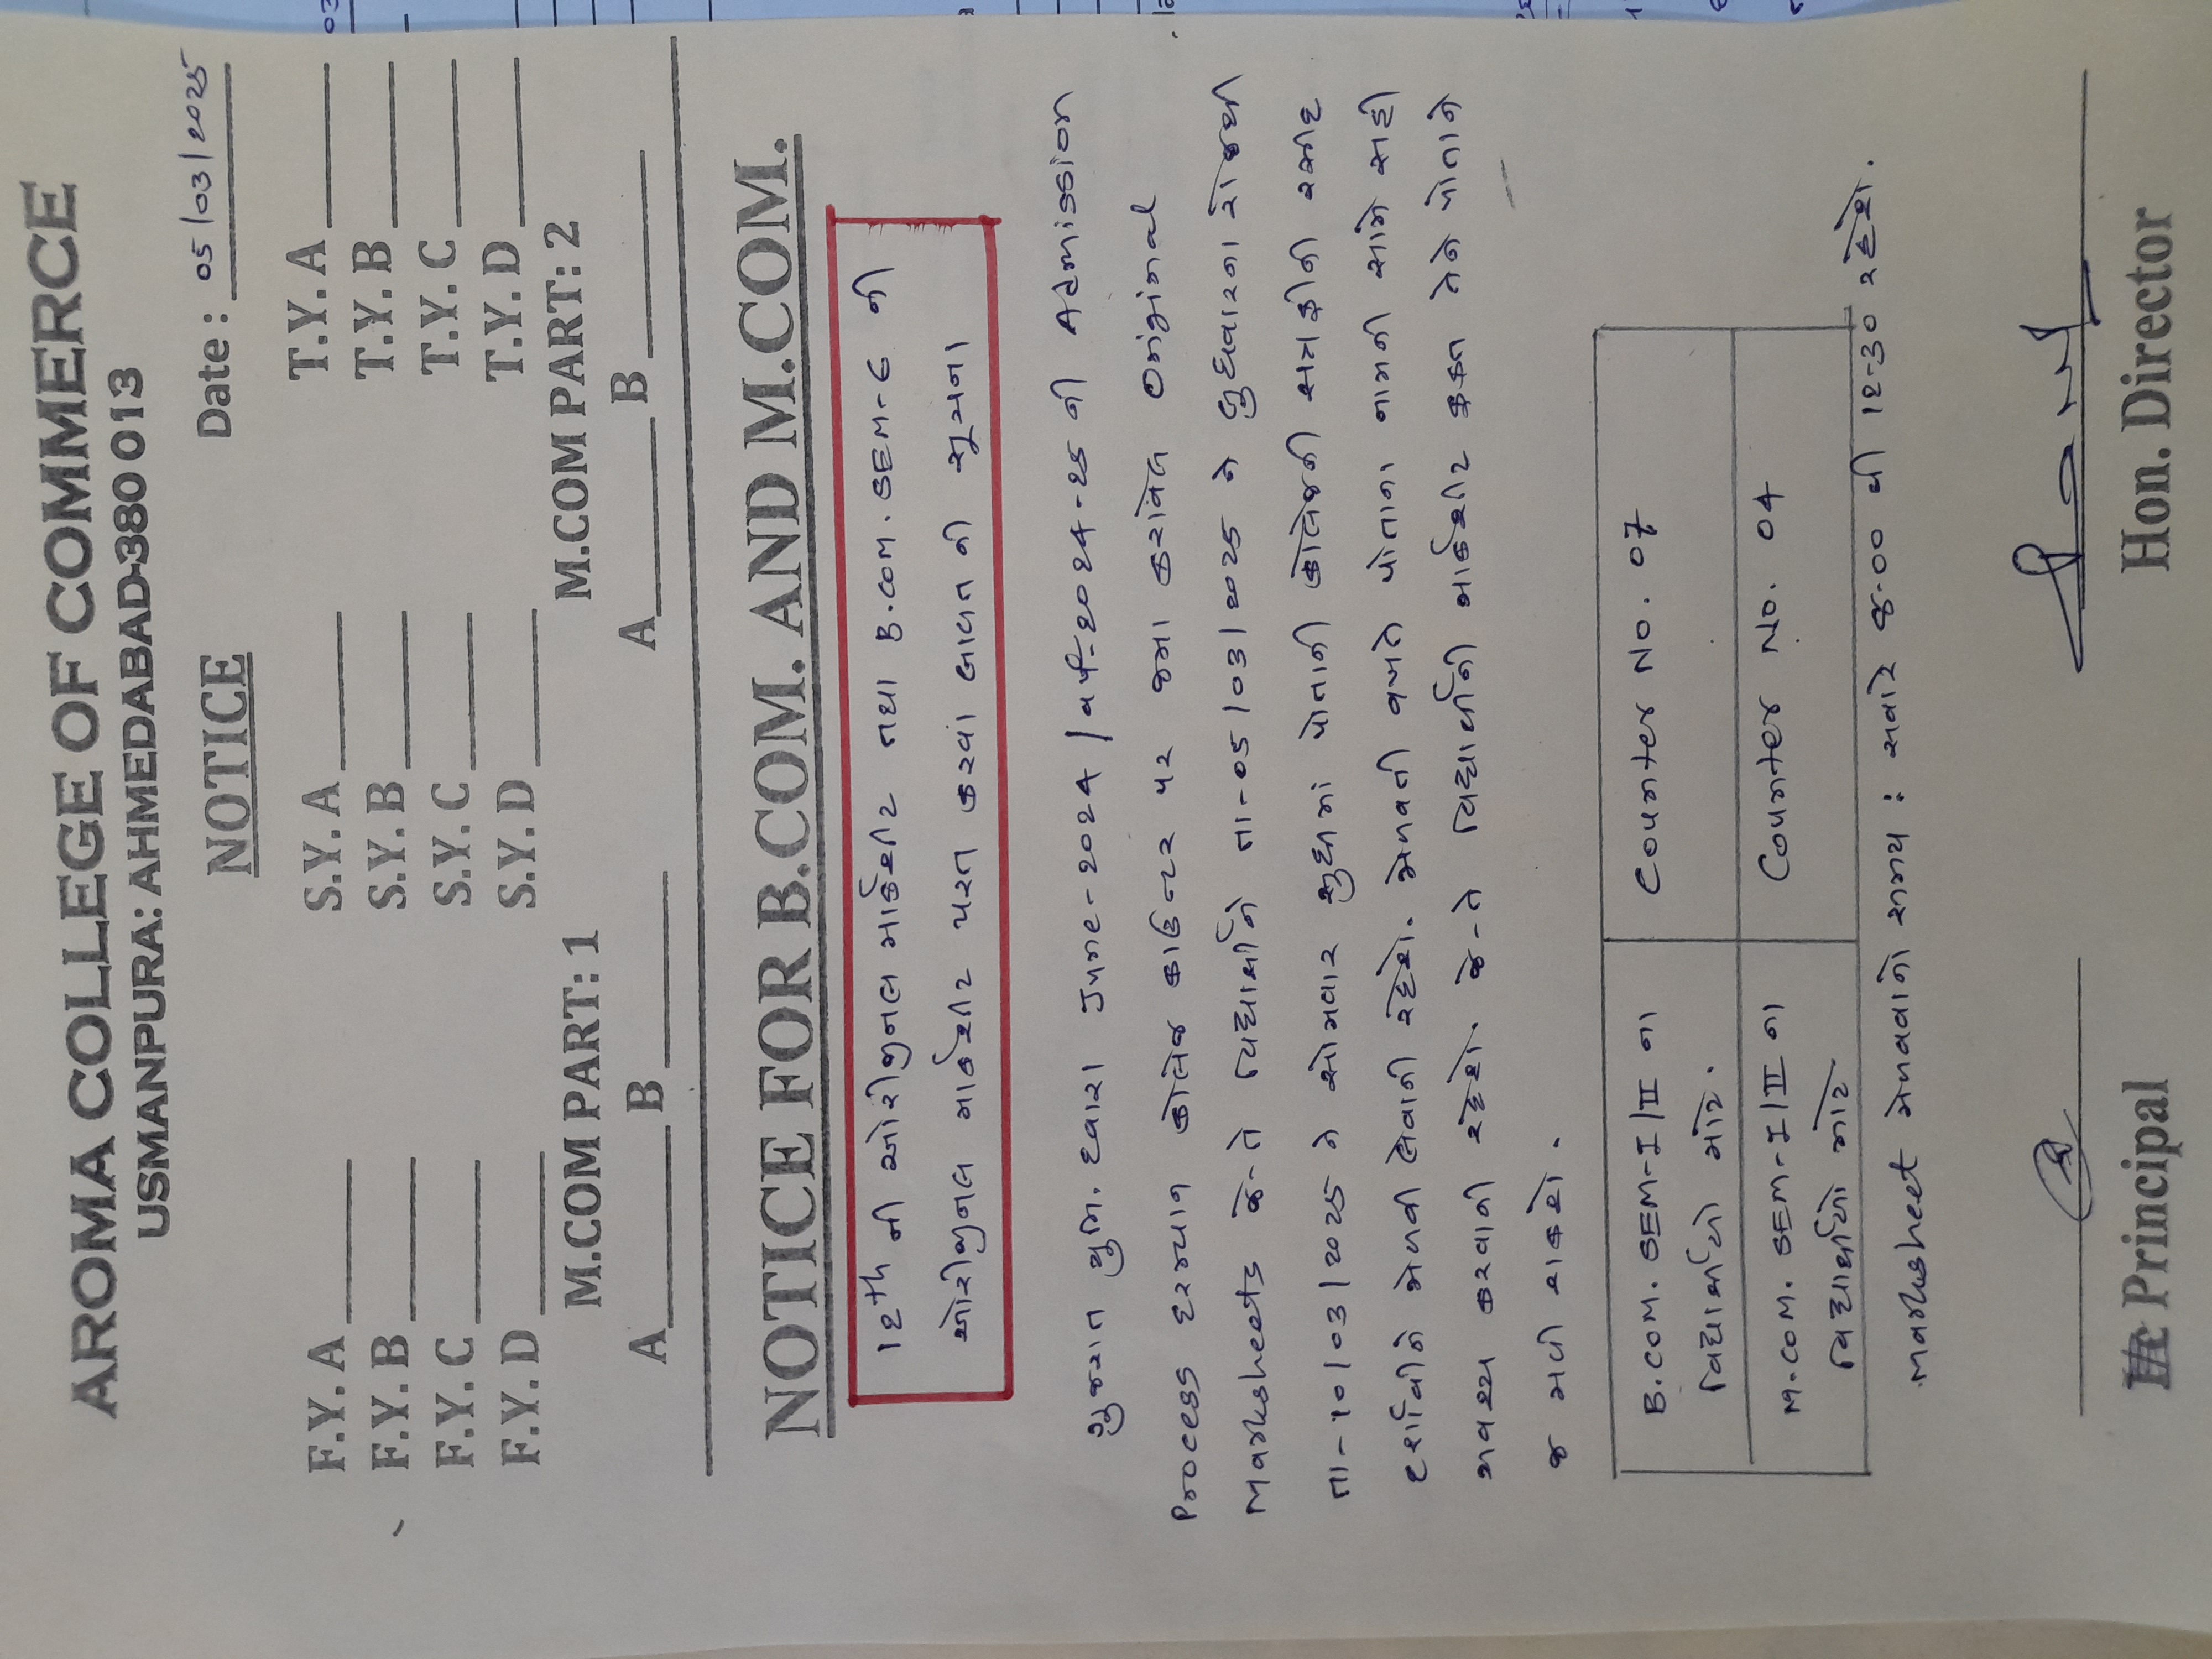 AROMA COLLEGE OF COMMERCE
USMANPURA: AHMEDABAD-380 013
NOTICE
Date : 05/03/2025
F.Y. A ______ S.Y. A ______ T.Y. A ______
F.Y. B ______ S.Y. B ______ T.Y. B ______
F.Y. C ______ S.Y. C ______ T.Y. C ______
F.Y. D ______ S.Y. D ______ T.Y. D ______
M.COM PART: 1 M.COM PART: 2
A______ B ______ A______ B ______
NOTICE FOR B.COM. AND M.COM.
12th ની ઓરીજીનલ માર્કશીટ તથા B.COM. SEM-6 ની
ઓરીજીનલ માર્કશીટ પરત કરવા બાબત ની સુચના
ગુજરાત યુનિ. દ્વારા June-2024 / વર્ષ-2024-25 ની Admission
Process દરમ્યાન કોલેજ કાઉન્ટર પર જમા કરાવેલ Original
Marksheets જે-તે વિદ્યાર્થીને તા-05/03/2025 ને બુધવારના રોજથી
તા-10/03/2025 ને સોમવાર સુધીમાં પોતાની કોલેજની ફીની રસીદ
દર્શાવીને મેળવી લેવાની રહેશે. મેળવતી વખતે પોતાના નામની સામે સહી
અવશ્ય કરવાની રહેશે. જે-તે વિદ્યાર્થીની માર્કશીટ ફક્ત તેને પોતાને
જ મળી શકશે.
B.COM. SEM-I/II ના Counter No. 07
વિદ્યાર્થીઓ માટે.
M.COM. SEM-I/II ના Counter No. 04
વિદ્યાર્થીઓ માટે.
Marksheet મેળવવાનો સમય : સવારે 8-00 થી 12-30 રહેશે.
I/c Principal Hon. Director